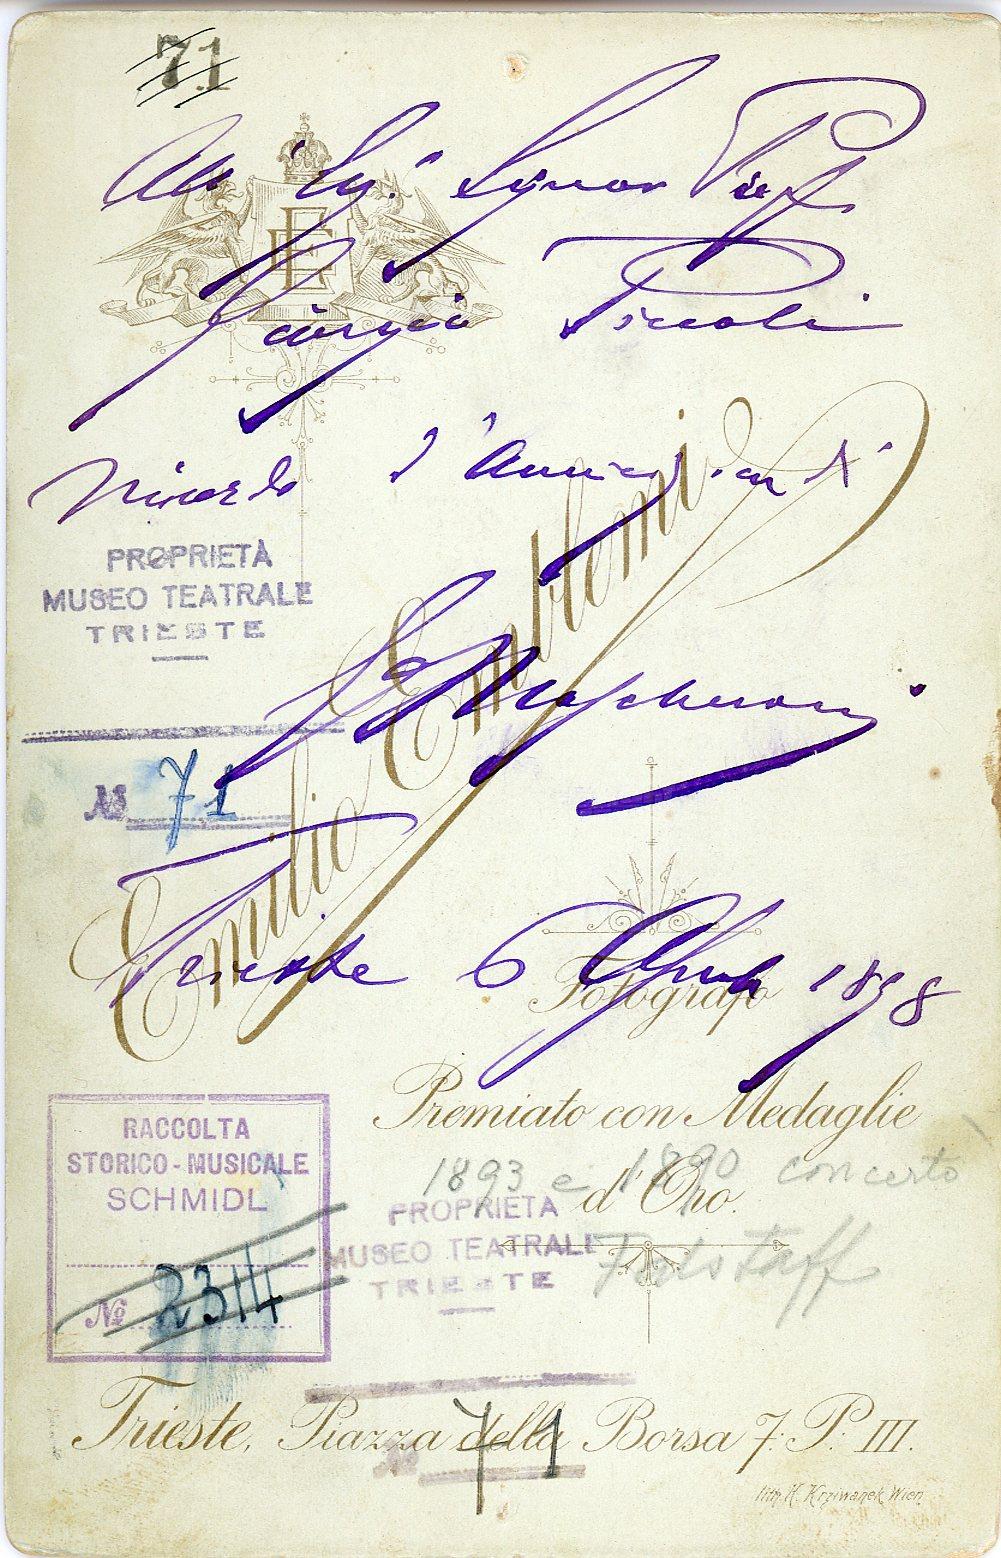 71
All' Eg. Signor Prof.
EE
Giorgio Piccoli
Ricordo d'
PROPRIETÀ
MUSEO TEATRALE
TRIESTE
Emilio Emblemi
E Mascheroni
№ 71
Trieste 6 Aprile 1898
Fotografo
Premiato con Medaglie
d'Oro.
1893 e 1890 concerto
Falstaff
RACCOLTA
STORICO-MUSICALE
SCHMIDL
№ 2314
PROPRIETÀ
MUSEO TEATRALE
TRIESTE
Trieste, Piazza della Borsa 7. P. III.
№ 71
lith. K. Krziwanek Wien